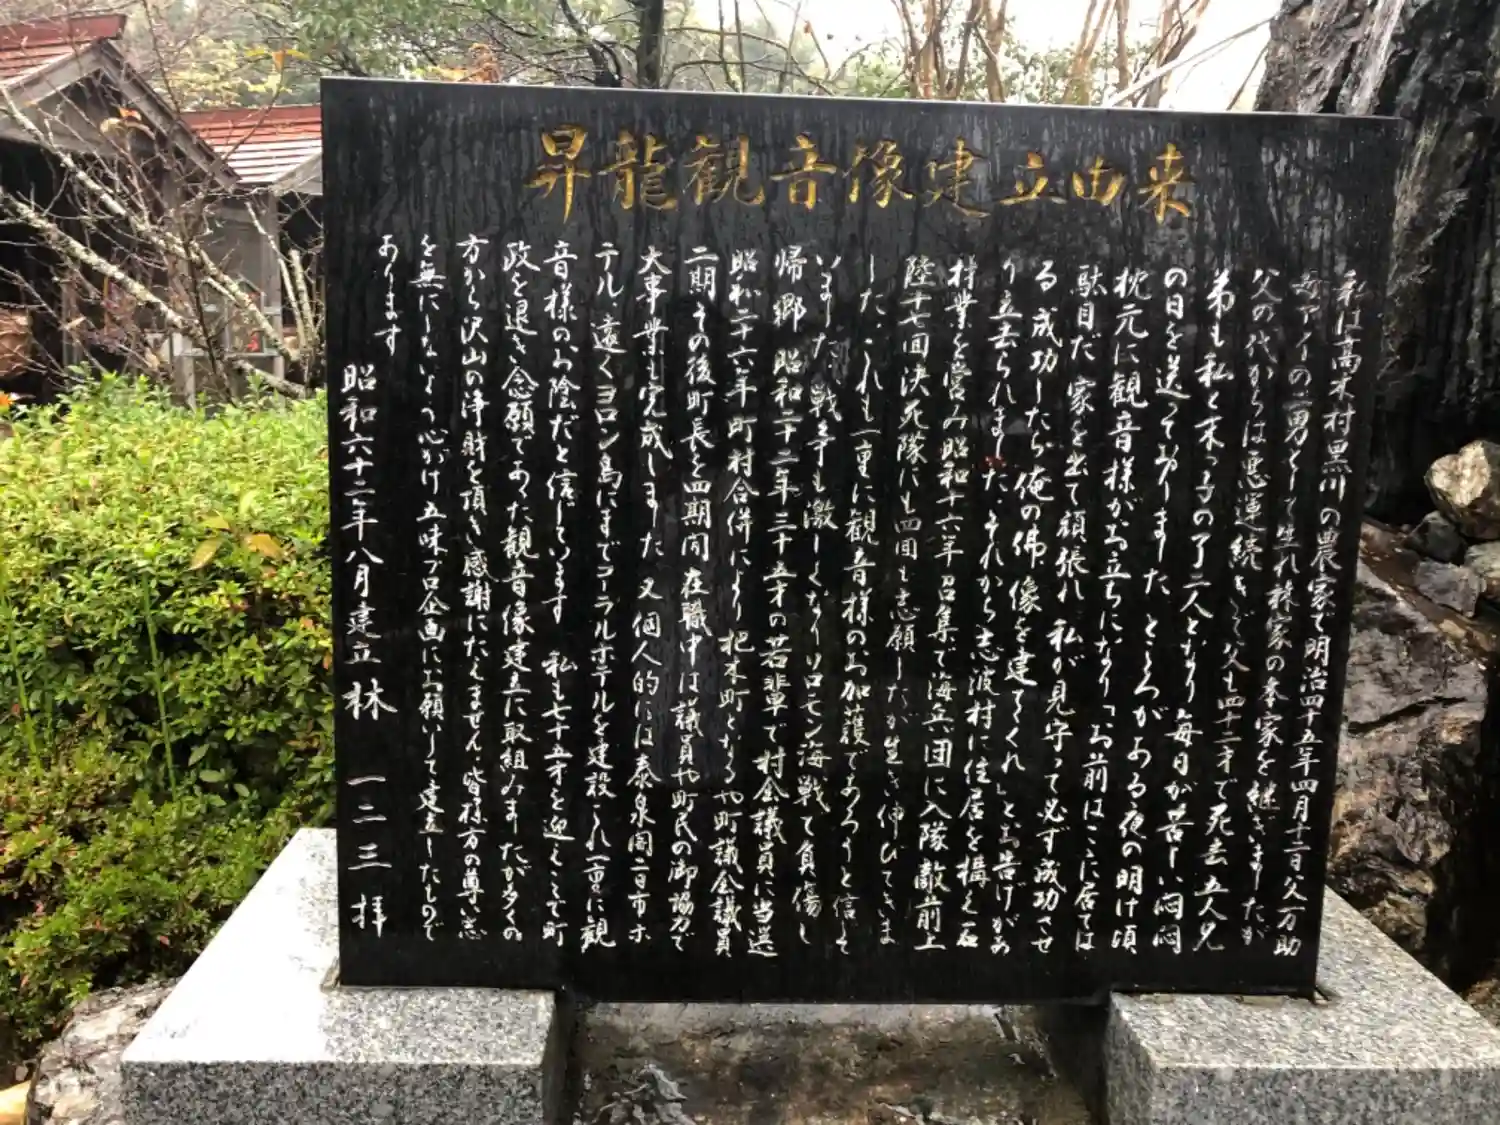 昇龍観音像建立由来
私は高木村黒川の農家で明治四十五年四月十二日父万助
母アイの二男として生れ林家の本家を継ぎましたが
父の代からは悪運続きで父も四十二才で死去五人兄
弟も私と末っ子の了二人となり毎日が苦しい悶悶
の日を送っておりました ところがある夜の明け頃
枕元に観音様がお立ちになり「お前はここに居ては
駄目だ 家を出て頑張れ 私が見守って必ず成功させ
る 成功したら俺の佛像を建てくれ」とお告げがあ
り立去られました それから志波村に住居を構え石
材業を営み昭和十六年召集で海兵団に入隊敵前上
陸十七回決死隊にも四回も志願したが生き伸びてきま
した これも一重に観音様のお加護であろうと信じて
いました 戦争も激しくなりソロモン海戦で負傷し
帰郷 昭和二十二年三十五才の若輩で村会議員に当選
昭和二十六年町村合併により杷木町となるや町議会議員
二期その後町長を四期間在職中は議員や町民の御協力で
大事業も完成しました 又個人的には泰泉閣二日市ホ
テル 遠くヨロン島にまでコーラルホテルを建設これ一重に観
音様のお陰だと信じています 私も七十五才を迎えここで町
政を退き念願であった観音像建立に取組みましたが多くの
方から沢山の浄財を頂き感謝にたえません 皆様方の尊い志
を無にしないよう心がけ五味プロ企画にお願いして建立したもので
あります
昭和六十二年八月建立 林 一二三 拝